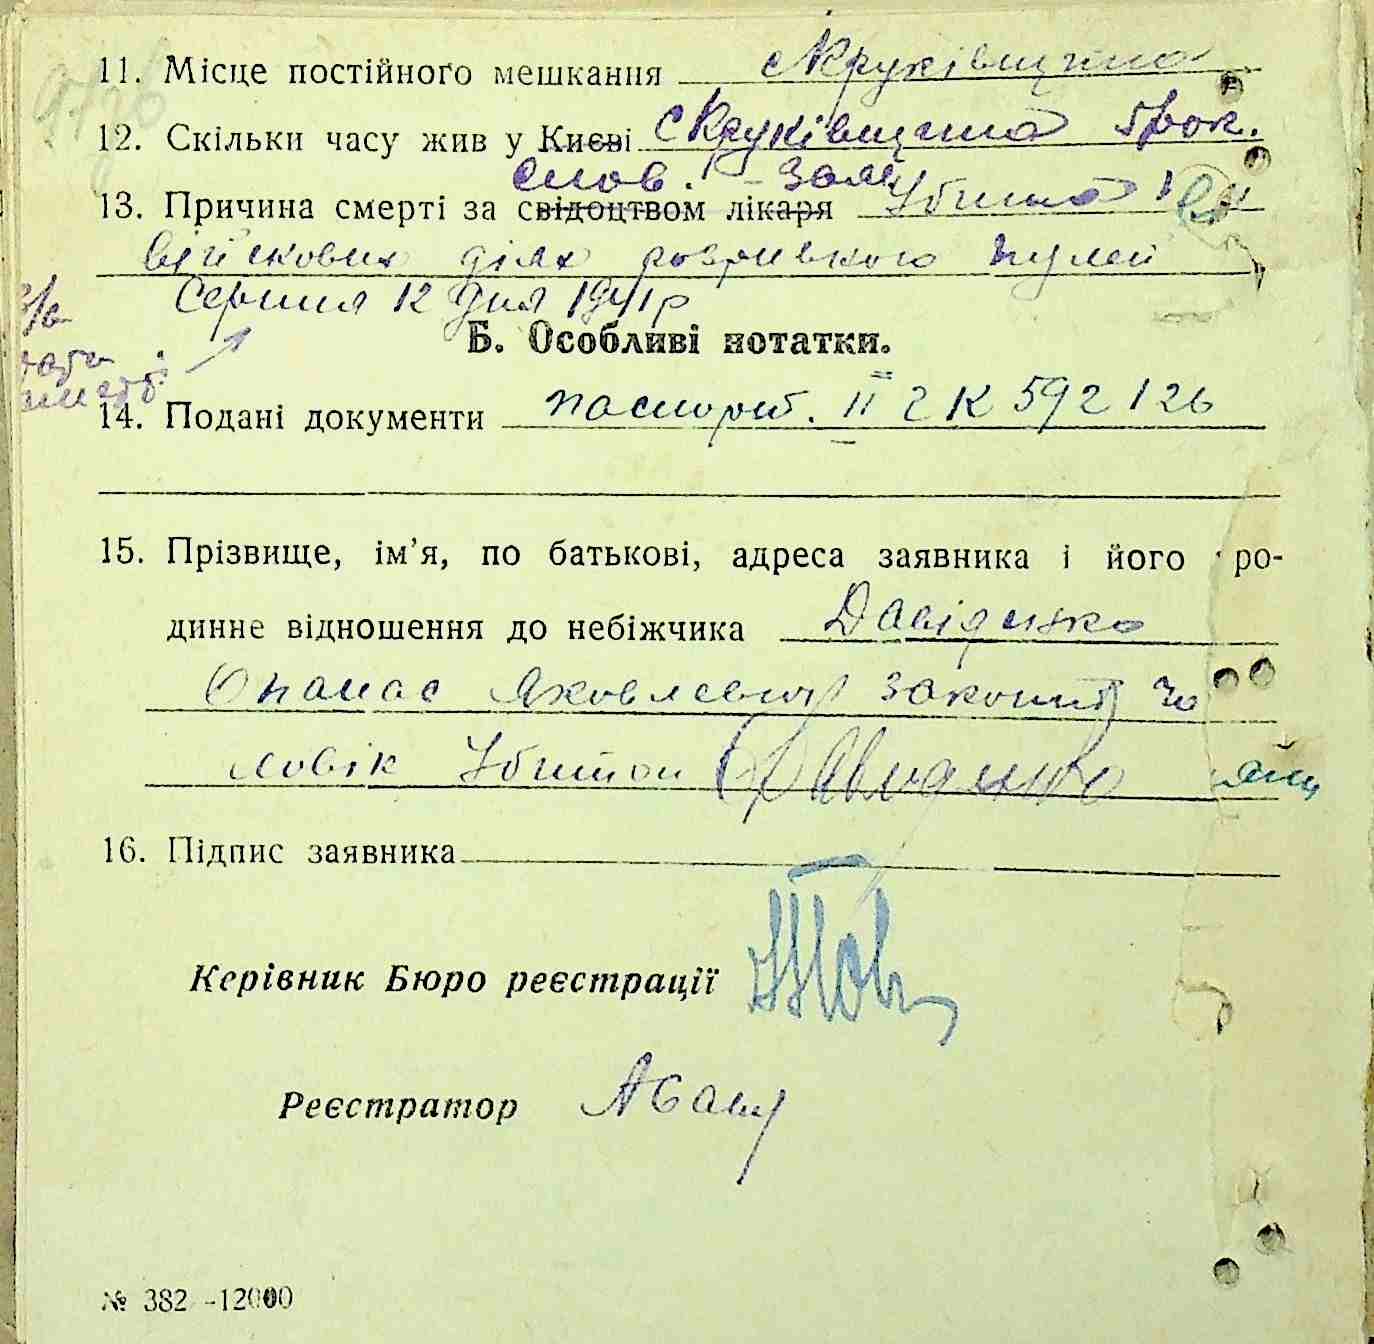 11. Місце постійного мешкання с Круківщина
12. Скільки часу жив у Києві с Круківщина 5 рок.
слов. заяв
13. Причина смерті за свідоцтвом лікаря Убита
військових діях розривною пулей
Серпня 12 дня 1941 р
Б. Особливі нотатки.
14. Подані документи паспорт. II ГК 592126
15. Прізвище, ім’я, по батькові, адреса заявника і його ро-
динне відношення до небіжчика Давіденко
Опанас Яковлевич законий чо
ловік Убитои Давиденко
16. Підпис заявника
Керівник Бюро реєстрації
Реєстратор
№ 382 -12000